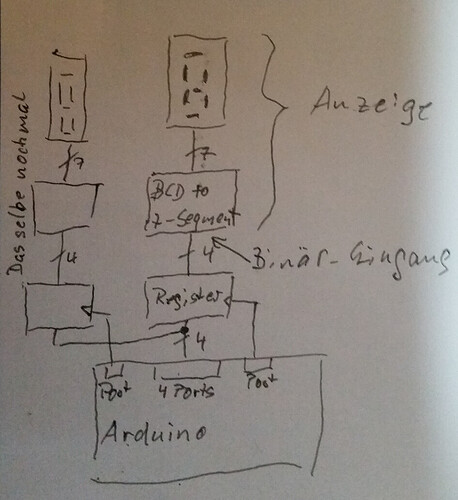 Anzeige
Das selbe nochmal
7
7
BCD to
7-Segment
4
4
Binär-Eingang
Register
4
Poot
4 Ports
Poot
Arduino